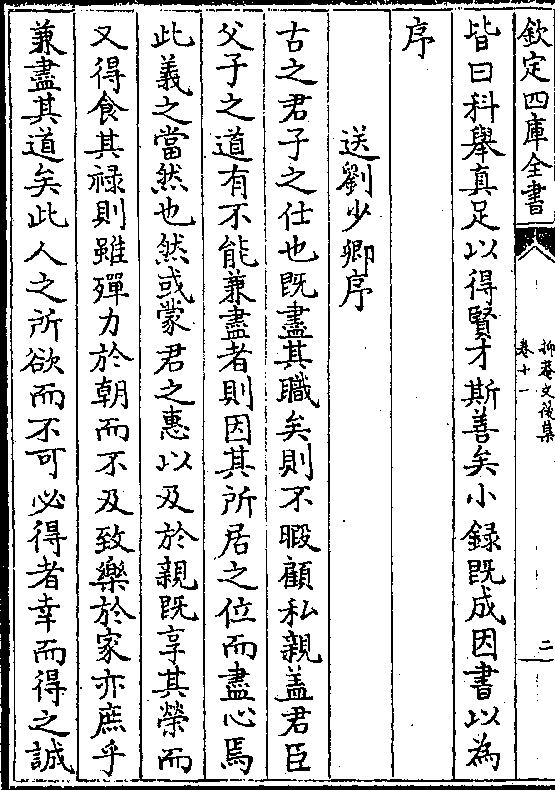 欽定四庫全書
抑菴文後集
卷十一
二
皆曰科舉真足以得賢才斯善矣小録既成因書以為
序
送劉少卿序
古之君子之仕也既盡其職矣則不暇顧私親盖君臣
父子之道有不能兼盡者則因其所居之位而盡心焉
此義之當然也然或蒙君之惠以及於親既享其榮而
又得食其禄則雖殫力於朝而不及致樂於家亦庶乎
兼盡其道矣此人之所欲而不可必得者幸而得之誠